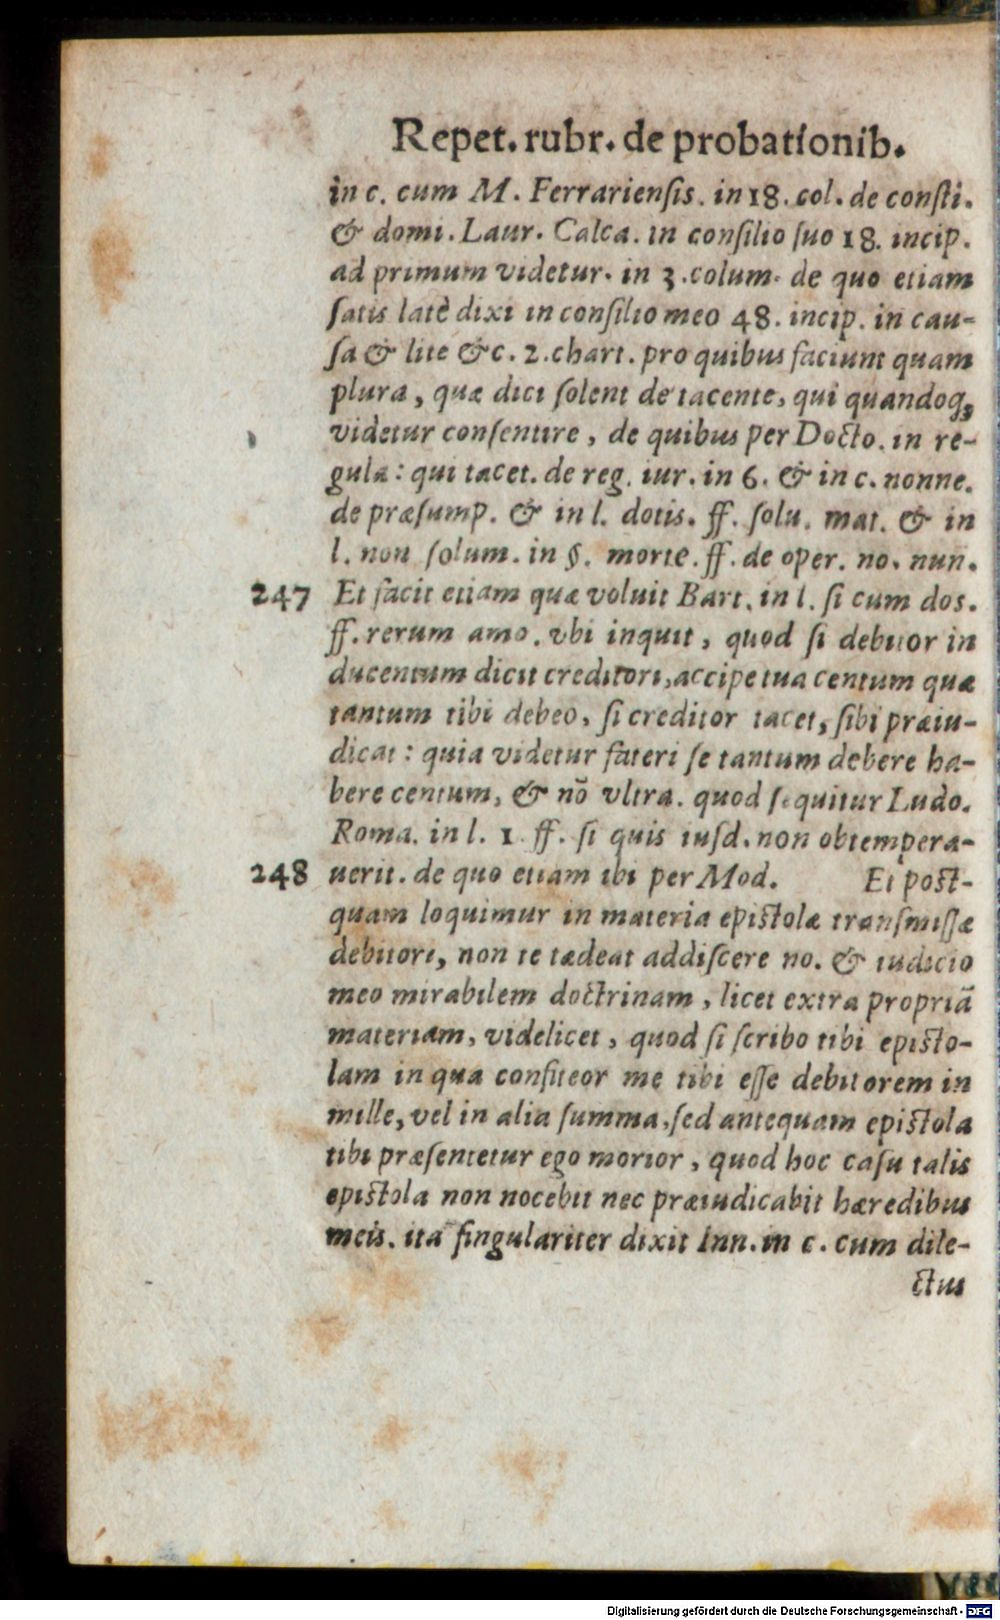 Repet. rubr. de probationib.
in c. cum M. Ferrariensis. in 18. col. de consti.
& domi. Laur. Calca. in consilio suo 18. incip.
ad primum videtur. in 3. colum. de quo etiam
satis latè dixi in consilio meo 48. incip. in cau-
sa & lite &c. 2. chart. pro quibus faciunt quam
plura, quæ dici solent de tacente, qui quandoq;
videtur consentire, de quibus per Docto. in re-
gula: qui tacet. de reg. iur. in 6. & in c. nonne.
de præsump. & in l. dotis. ff. solu. mat. & in
l. non solum. in §. morte. ff. de oper. no. nun.
247 Et facit etiam quæ voluit Bart. in l. si cum dos.
ff. rerum amo. vbi inquit, quod si debitor in
ducentum dicit creditori, accipe tua centum quæ
tantum tibi debeo, si creditor tacet, sibi præiu-
dicat: quia videtur fateri se tantum debere ha-
bere centum, & nō vltra. quod sequitur Ludo.
Roma. in l. 1 ff. si quis iusd. non obtempera-
248 uerit. de quo etiam ibi per Mod. Et post-
quam loquimur in materia epistolæ transmissæ
debitori, non te tædeat addiscere no. & iudicio
meo mirabilem doctrinam, licet extra propriā
materiam, videlicet, quod si scribo tibi episto-
lam in qua confiteor me tibi esse debitorem in
mille, vel in alia summa, sed antequam epistola
tibi præsentetur ego morior, quod hoc casu talis
epistola non nocebit nec præiudicabit hæredibus
meis. ita singulariter dixit Inn. in c. cum dile-
ctus
Digitalisierung gefördert durch die Deutsche Forschungsgemeinschaft - DFG